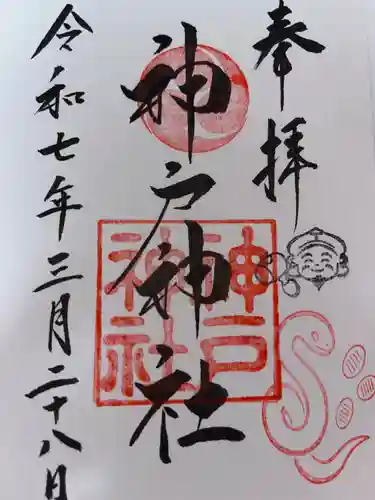 奉拝
神戸神社
神戸
神社
令和七年三月二十八日